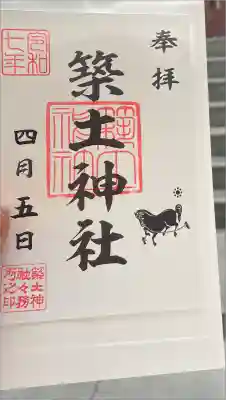 奉拝
築土神社
令和
七年
四月五日
築土神
社々務
所之印